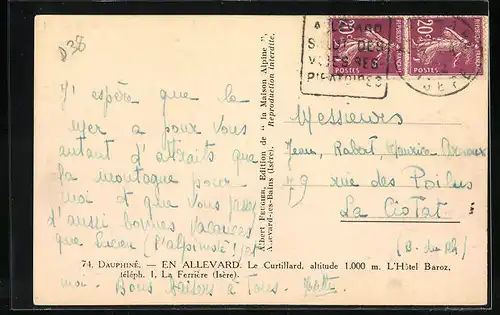 D 38
J'espère que la
mer a pour vous
autant d'attraits que
la montagne pour
moi et que vous passez
d'aussi bonnes vacances
que Lucien (l'alpiniste!) et
moi. Bons baisers à tous.
Albert FEUGIER, Edition de "la Maison Alpine"
Allevard-les-Bains (Isère). Reproduction interdite.
20c
POSTES
20c
POSTES
Messieurs
Jean, Robert, Maurice
79 rue des Poilus
La Ciotat
(B. du Rh)
74. DAUPHINÉ. — EN ALLEVARD. Le Curtillard, altitude 1.000 m. L'Hôtel Baroz,
téléph. 1, La Ferrière (Isère).